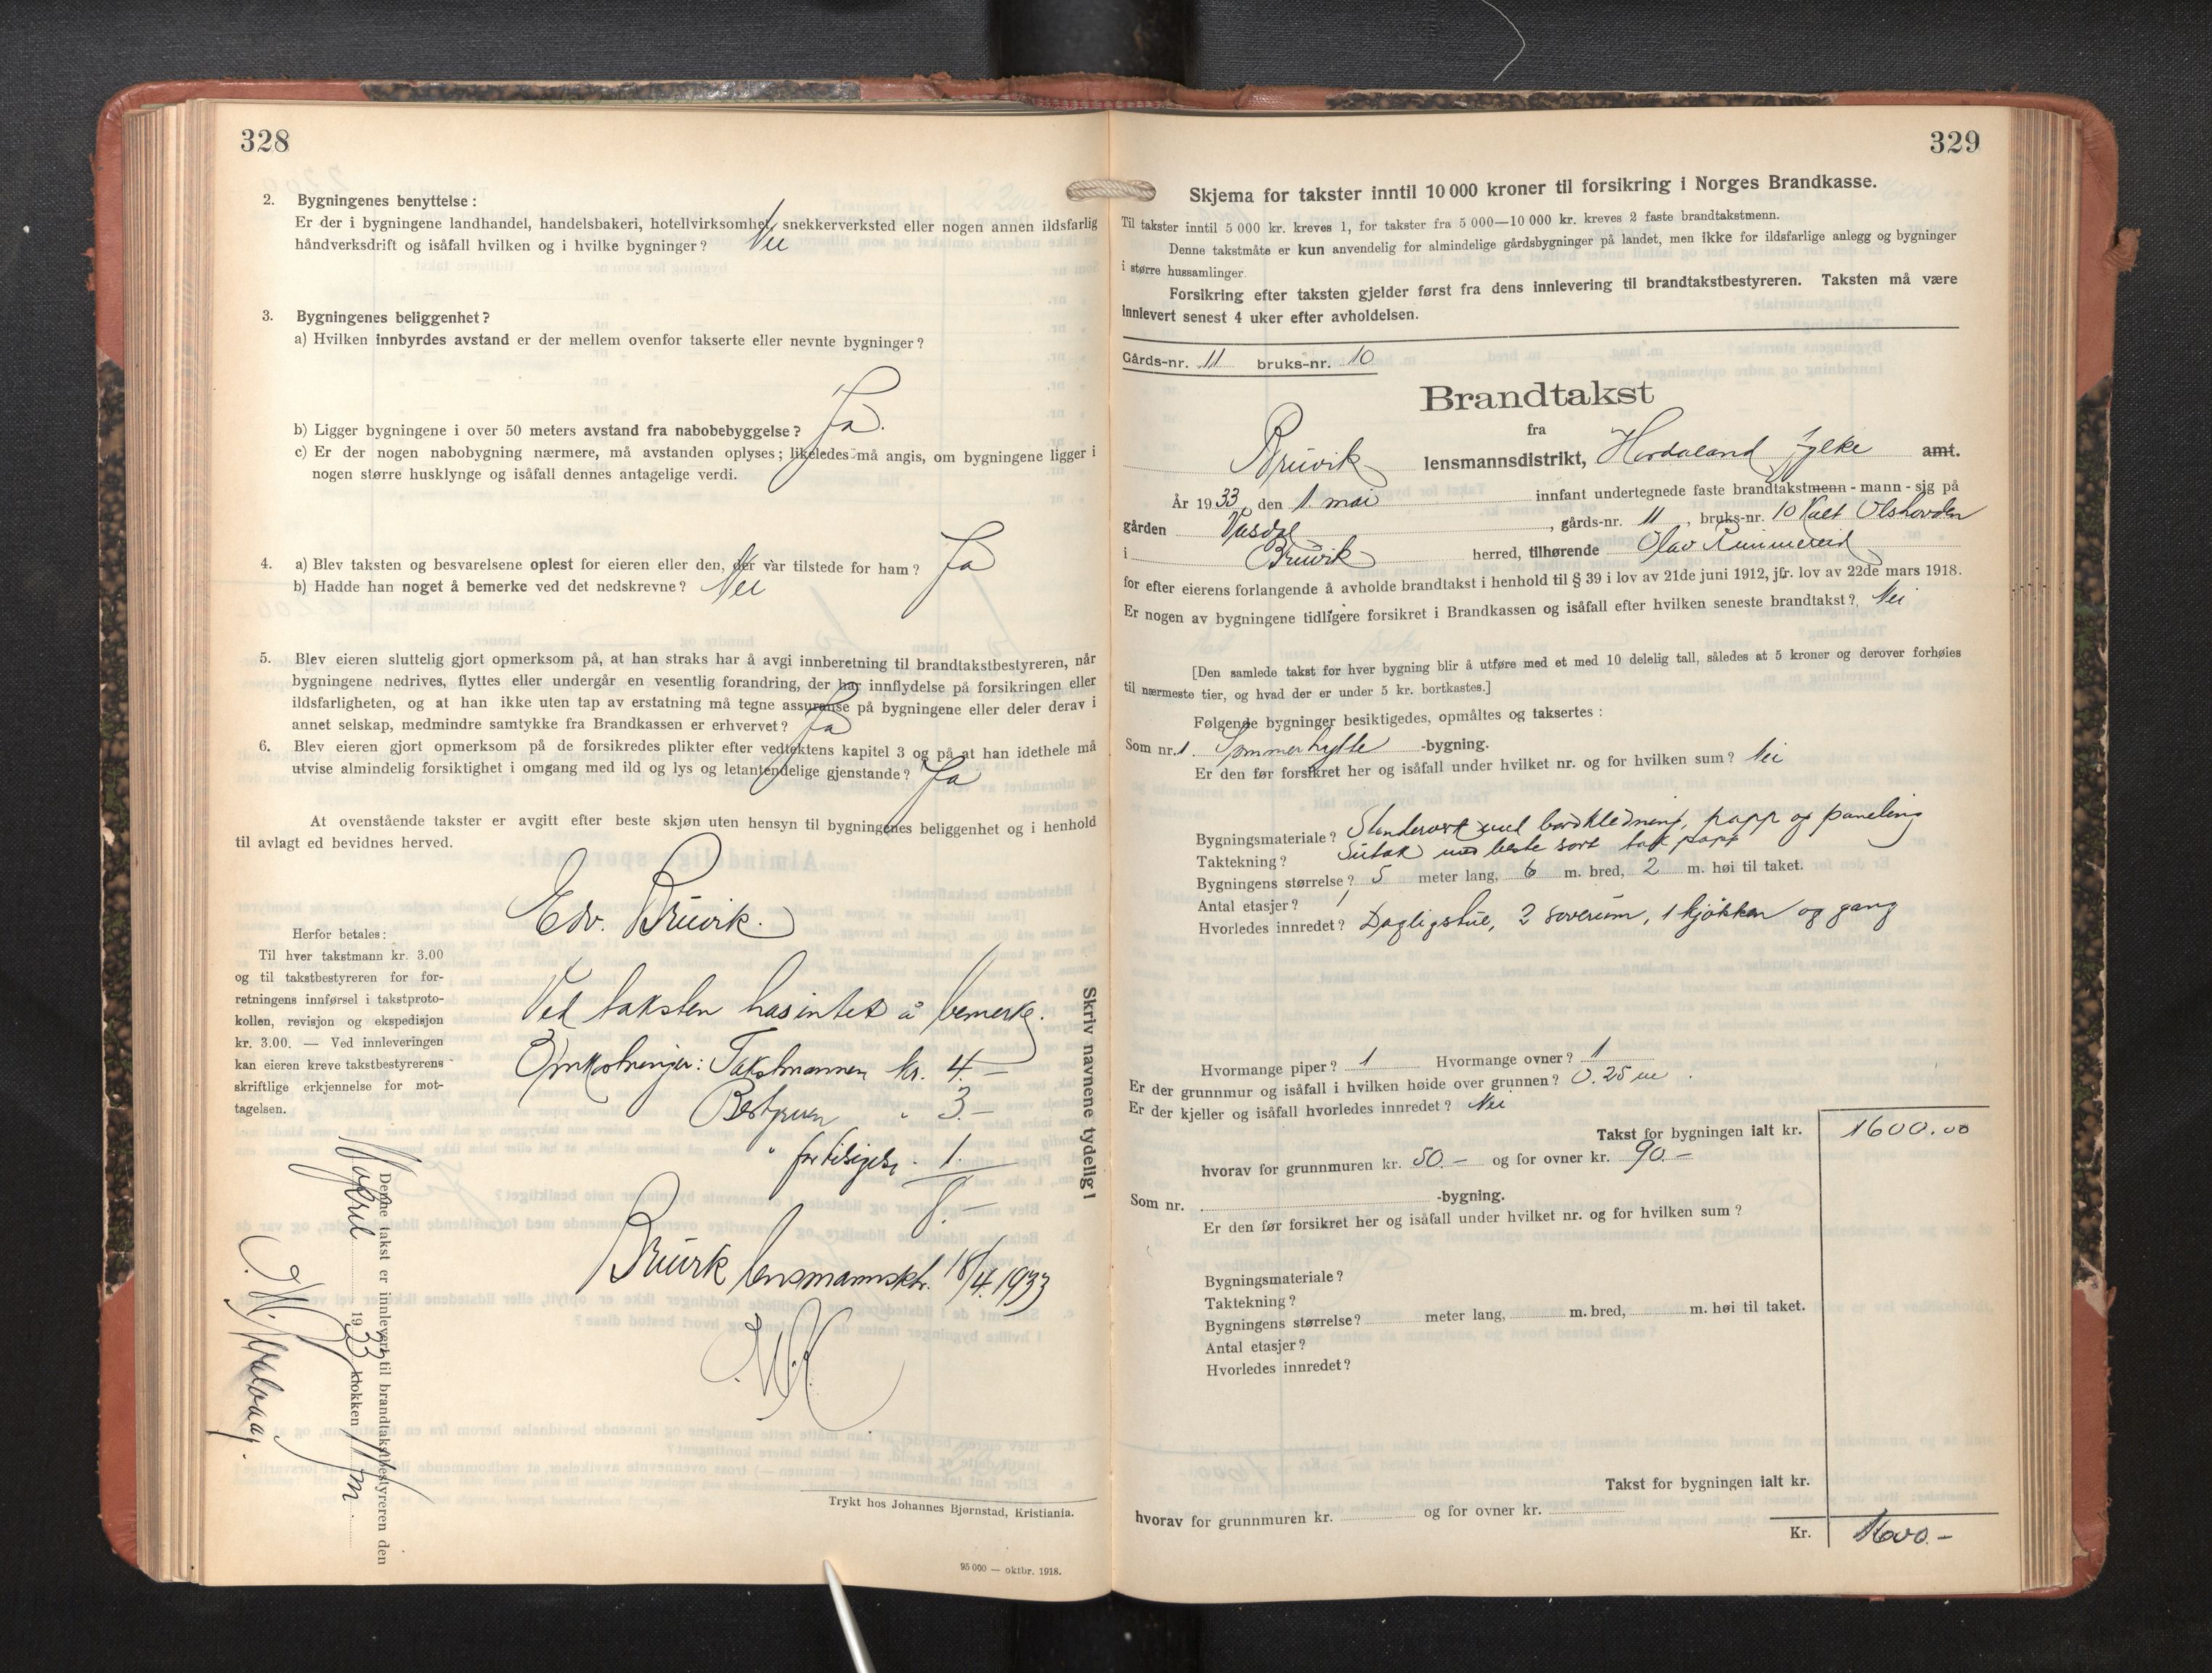 328
2. Bygningenes benyttelse:
Er der i bygningene landhandel, handelsbakeri, hotellvirksomhet, snekkerverksted eller nogen annen ildsfarlig
håndverksdrift og isåfall hvilken og i hvilke bygninger? Nei
3. Bygningenes beliggenhet?
a) Hvilken innbyrdes avstand er der mellem ovenfor takserte eller nevnte bygninger?
b) Ligger bygningene i over 50 meters avstand fra nabobebyggelse? Ja.
c) Er der nogen nabobygning nærmere, må avstanden oplyses; likeledes må angis, om bygningene ligger i
nogen større husklynge og isåfall dennes antagelige verdi.
4. a) Blev taksten og besvarelsene oplest for eieren eller den, der var tilstede for ham? Ja
b) Hadde han noget å bemerke ved det nedskrevne? Nei
5. Blev eieren sluttelig gjort opmerksom på, at han straks har å avgi innberetning til brandtakstbestyreren, når
bygningene nedrives, flyttes eller undergår en vesentlig forandring, der har innflydelse på forsikringen eller
ildsfarligheten, og at han ikke uten tap av erstatning må tegne assuranse på bygningene eller deler derav i
annet selskap, medmindre samtykke fra Brandkassen er erhvervet? Ja
6. Blev eieren gjort opmerksom på de forsikredes plikter efter vedtektens kapitel 3 og på at han idethele må
utvise almindelig forsiktighet i omgang med ild og lys og letantendelige gjenstande? Ja
At ovenstående takster er avgitt efter beste skjøn uten hensyn til bygningenes beliggenhet og i henhold
til avlagt ed bevidnes herved.
Edv. Bruvik.
Herfor betales:
Til hver takstmann kr. 3.00
og til takstbestyreren for for-
retningens innførsel i takstproto-
kollen, revisjon og ekspedisjon
kr. 3.00. — Ved innleveringen
kan eieren kreve takstbestyrerens
skriftlige erkjennelse for mot-
tagelsen.
Ved taksten has intet å bemerke.
Omkostninger: Takstmannen kr. 4.—
Bestyreren " 3.—
" 1.—
8.—
Bruvik lensmannsktr. 18/4 1933
Skriv navnene tydelig!
Denne takst er innlevert til brandtakstbestyreren den
1933 klokken 11 fm.
Trykt hos Johannes Bjørnstad, Kristiania.
95 000 — oktbr. 1918.
329
Skjema for takster inntil 10 000 kroner til forsikring i Norges Brandkasse.
Til takster inntil 5 000 kr. kreves 1, for takster fra 5 000—10 000 kr. kreves 2 faste brandtakstmenn.
Denne takstmåte er kun anvendelig for almindelige gårdsbygninger på landet, men ikke for ildsfarlige anlegg og bygninger
i større hussamlinger.
Forsikring efter taksten gjelder først fra dens innlevering til brandtakstbestyreren. Taksten må være
innlevert senest 4 uker efter avholdelsen.
Gårds-nr. 11 bruks-nr. 10
Brandtakst
fra
Bruvik lensmannsdistrikt, Hordaland fylke amt.
År 1933, den 1. mai innfant undertegnede faste brandtakstmenn - mann - sig på
gården Vasdal, gårds-nr. 11, bruks-nr. 10 kalt Olshovden
i Bruvik herred, tilhørende Olav
for efter eierens forlangende å avholde brandtakst i henhold til § 39 i lov av 21de juni 1912, jfr. lov av 22de mars 1918.
Er nogen av bygningene tidligere forsikret i Brandkassen og isåfall efter hvilken seneste brandtakst? Nei
[Den samlede takst for hver bygning blir å utføre med et med 10 delelig tall, således at 5 kroner og derover forhøies
til nærmeste tier, og hvad der er under 5 kr. bortkastes.]
Følgende bygninger besiktigedes, opmåltes og taksertes:
Som nr. 1. Sommerhytte -bygning.
Er den før forsikret her og isåfall under hvilket nr. og for hvilken sum? Nei
Bygningsmateriale? med bordkledning, papp og paneling
Taktekning? Sutak med beste sort tak papp
Bygningens størrelse? 5 meter lang, 6 m. bred, 2 m. høi til taket.
Antal etasjer? 1
Hvorledes innredet? Dagligstue, 2 soverum, 1 kjøkken og gang
Hvormange piper? 1 Hvormange ovner? 1
Er der grunnmur og isåfall i hvilken høide over grunnen? 0.25 m.
Er der kjeller og isåfall hvorledes innredet? Nei
Takst for bygningen ialt kr. 1600.00
hvorav for grunnmuren kr. 50.— og for ovner kr. 90.—
Som nr. -bygning.
Er den før forsikret her og isåfall under hvilket nr. og for hvilken sum?
Bygningsmateriale?
Taktekning?
Bygningens størrelse? meter lang, m. bred, m. høi til taket.
Antal etasjer?
Hvorledes innredet?
Takst for bygningen ialt kr.
hvorav for grunnmuren kr. og for ovner kr.
Kr. 1600.—